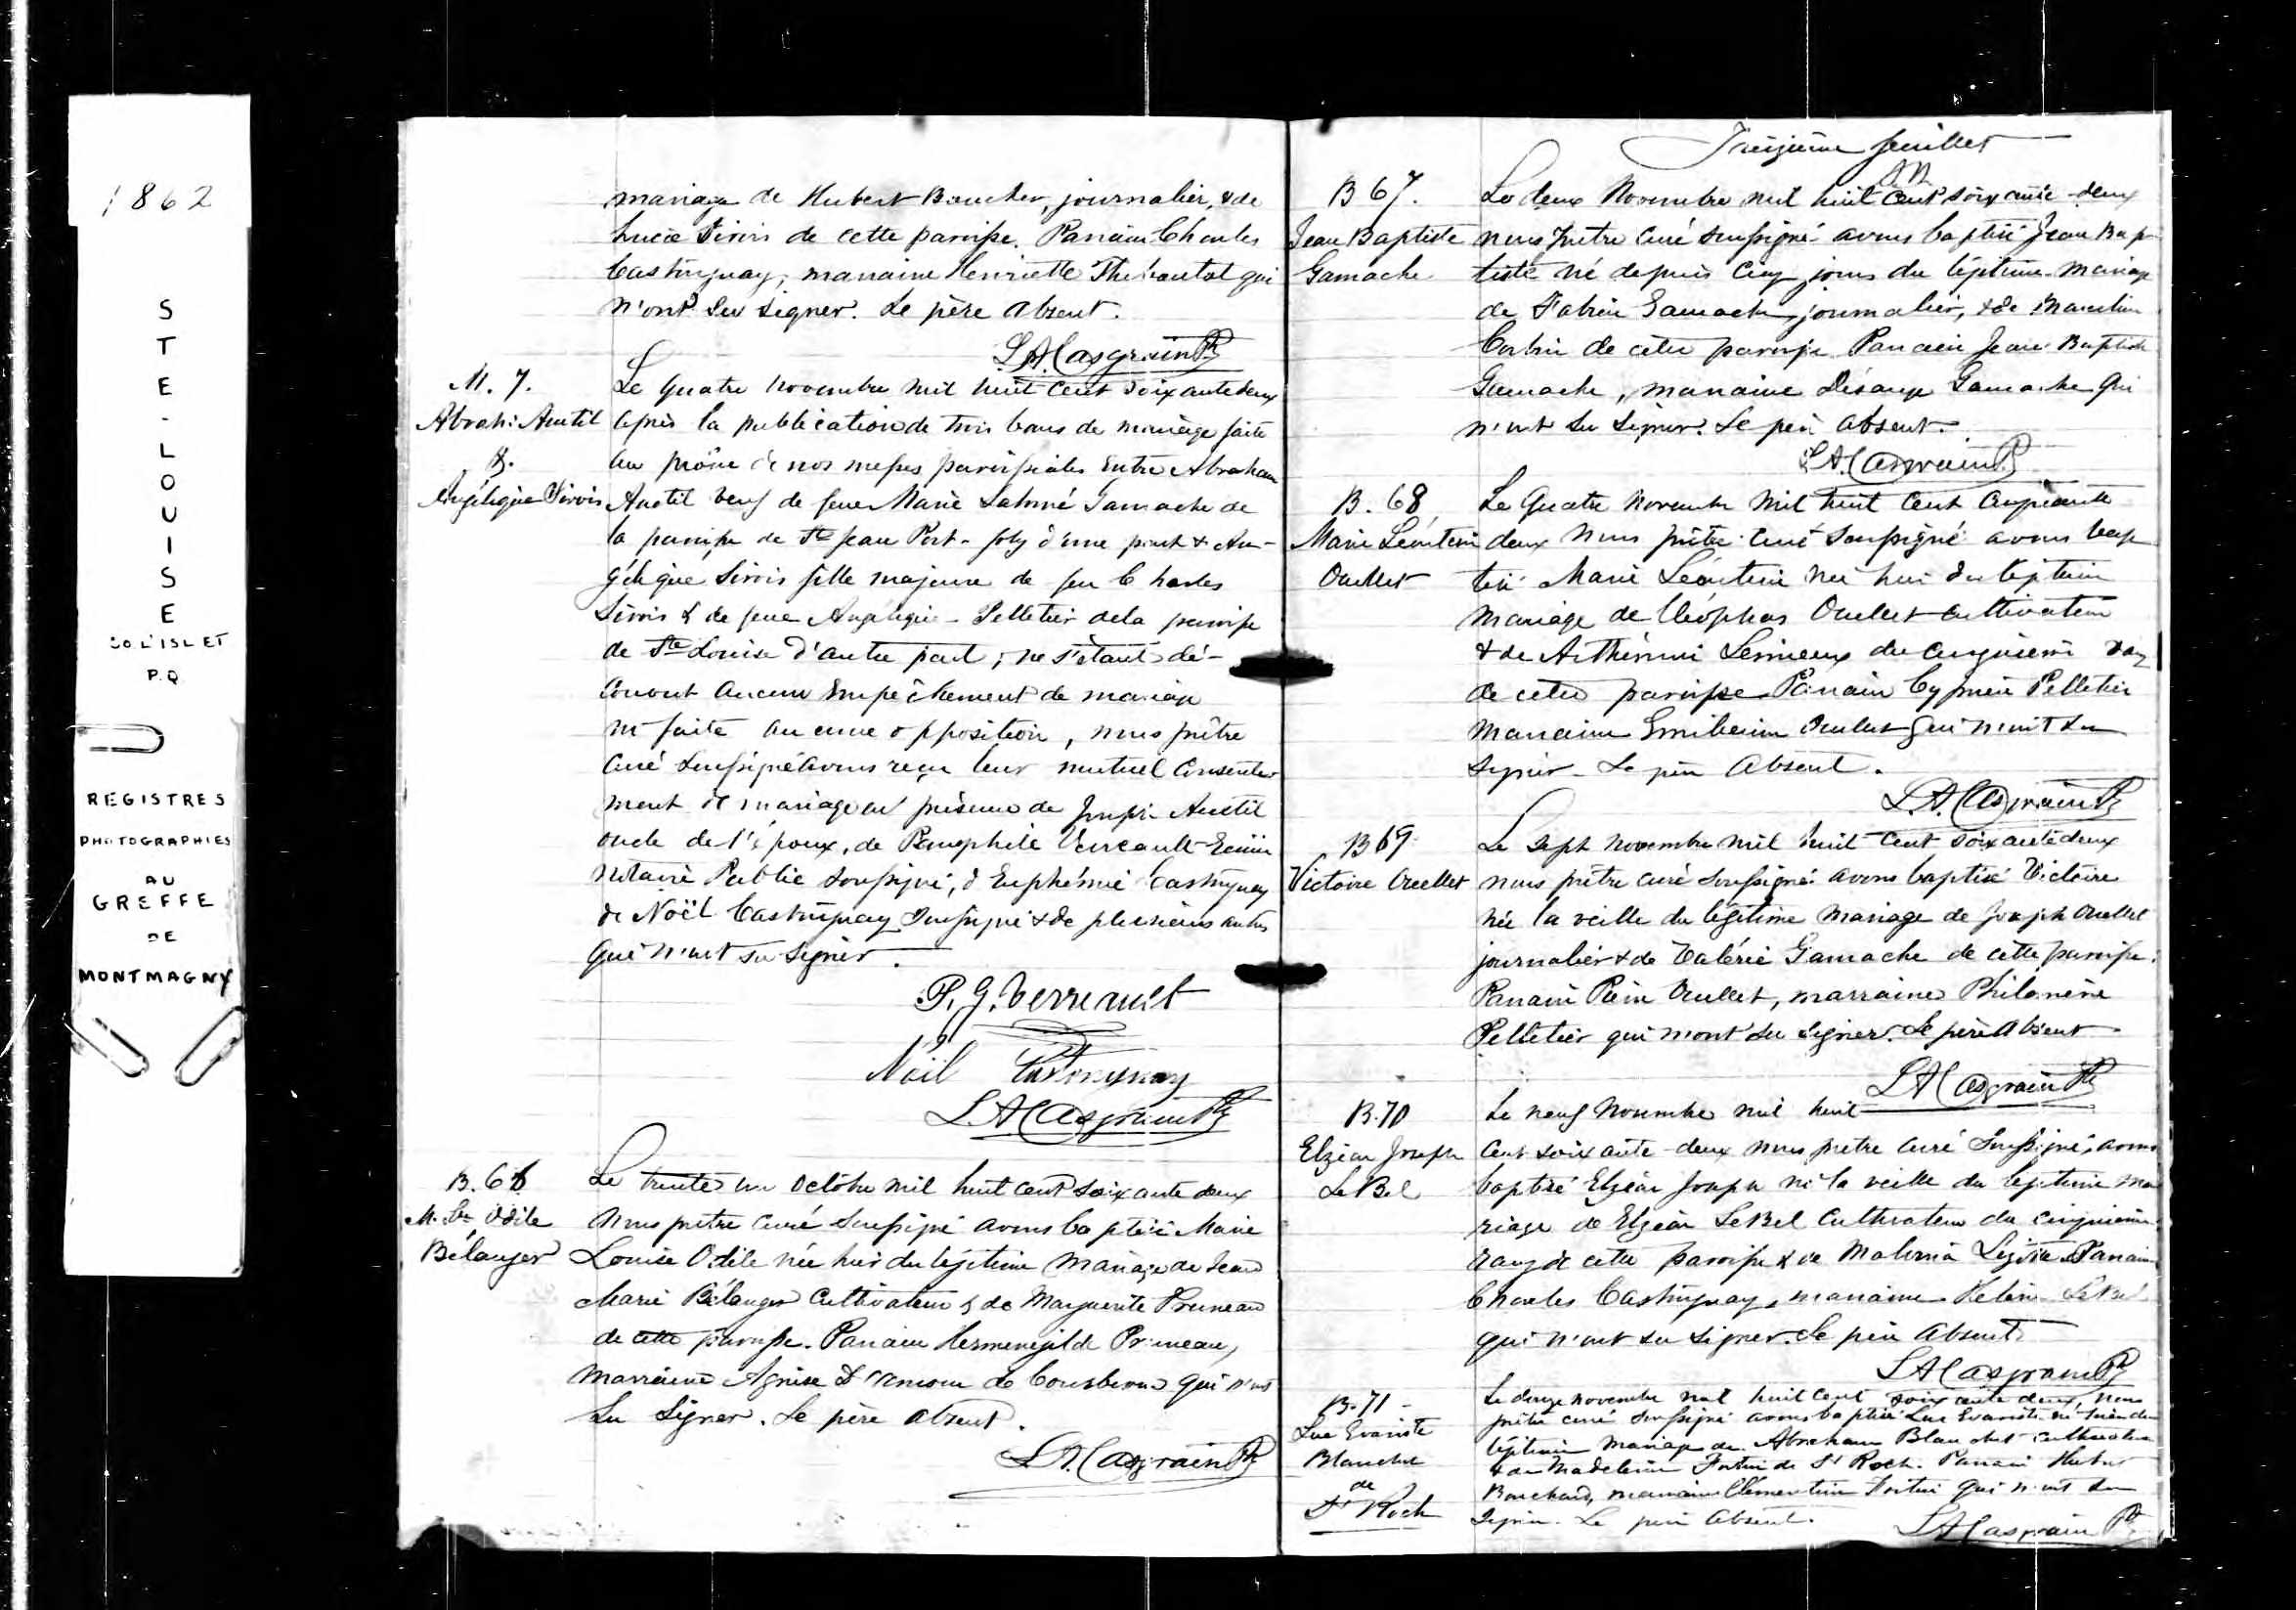 1862
STE-LOUISE
CO L'ISLET
P.Q
REGISTRES
PHOTOGRAPHIES
AU
GREFFE
DE
MONTMAGNY
mariage de Hubert Boucher, journalier, & de
Lucie Sirois de cette paroisse. Parrain Charles
Castonguay, marraine Henriette Thiboutot qui
n'ont su signer. Le père absent.
L.A. Casgrain Ptre
M. 7.
Abrah: Anctil
&
Angélique Sirois
Le quatre novembre mil huit cent soixante deux
après la publication de trois bans de mariage faite
au prône de nos messes paroissiales entre Abraham
Anctil veuf de feue Marie Salomé Gamache de
la paroisse de St Jean Port-Joly d'une part & An-
gélique Sirois fille majeure de feu Charles
Sirois & de feue Angélique Pelletier de la paroisse
de Ste Louise d'autre part; ne s'étant dé-
couvert aucun empêchement de mariage
ni faite aucune opposition, nous prêtre
curé soussigné avons reçu leur mutuel consente-
ment de mariage en présence de Joseph Anctil
oncle de l'époux, de Pamphile Verreault Ecuier
Notaire Public soussigné, d'Euphémie Castonguay
de Noël Castonguay soussigné & de plusieurs autres
qui n'ont su signer.
P. G. Verreault
Noël Castonguay
L.A. Casgrain Ptre
B. 66
M. Lse Odile
Bélanger
Le trente un octobre mil huit cent soixante deux
nous prêtre curé soussigné avons baptisé Marie
Louise Odile née hier du légitime mariage de Jean
Marie Bélanger cultivateur & de Marguerite Pruneau
de cette paroisse. Parrain Hermenegilde Pruneau,
marraine Agnèse qui n'ont
su signer. Le père absent.
L.A. Casgrain Ptre
Treizième feuillet
B 67.
Jean Baptiste
Gamache
Le deux Novembre mil huit cent soixante-deux
nous prêtre curé soussigné avons baptisé Jean Bap-
tiste né depuis cinq jours du légitime mariage
de Fabien Gamache journalier, & de Marceline
Corbin de cette paroisse Parrain Jean Baptiste
Gamache, marraine Désange Gamache qui
n'ont su signer. Le père absent.
L.A. Casgrain Ptre
B. 68
Marie Léontine
Ouellet
Le quatre novembre mil huit cent cinquante
deux nous prêtre curé soussigné avons bap
tisé Marie Léontine née hier du légitime
mariage de Cléophas Ouellet cultivateur
& de Arthémise Lemieux du cinquième rang
de cette paroisse Parrain Cyprien Pelletier
marraine Emilienne Ouellet qui n'ont su
signer. Le père absent.
L.A. Casgrain Ptre
B 69
Victoire Ouellet
Le sept novembre mil huit cent soixante deux
nous prêtre curé soussigné avons baptisé Victoire
née la veille du légitime mariage de Joseph Ouellet
journalier & de Valérie Gamache de cette paroisse.
Parrain Pierre Ouellet, marraine Philomène
Pelletier qui n'ont su signer. Le père absent
L.A. Casgrain Ptre
B. 70
Elzéar Joseph
LeBel
Le neuf novembre mil huit
cent soixante-deux nous prêtre curé soussigné, avons
baptisé Elzéar Joseph né la veille du légitime ma
riage de Elzéar LeBel cultivateur du cinquième
rang de cette paroisse & de Malvina Parrain
Charles Castonguay, marraine LeBel
qui n'ont su signer. Le père absent
L.A. Casgrain Ptre
B. 71
Luc Evariste
Blanchet
de
St Roch
Le douze novembre mil huit cent soixante deux, nous
prêtre curé soussigné avons baptisé Luc Evariste né hier du
légitime mariage de Abraham Blanchet cultivateur
& de Madeleine Fortin de St Roch. Parrain Hubert
Bouchard, marraine Clémentine Fortin qui n'ont su
signer. Le père absent.
L.A. Casgrain Ptre